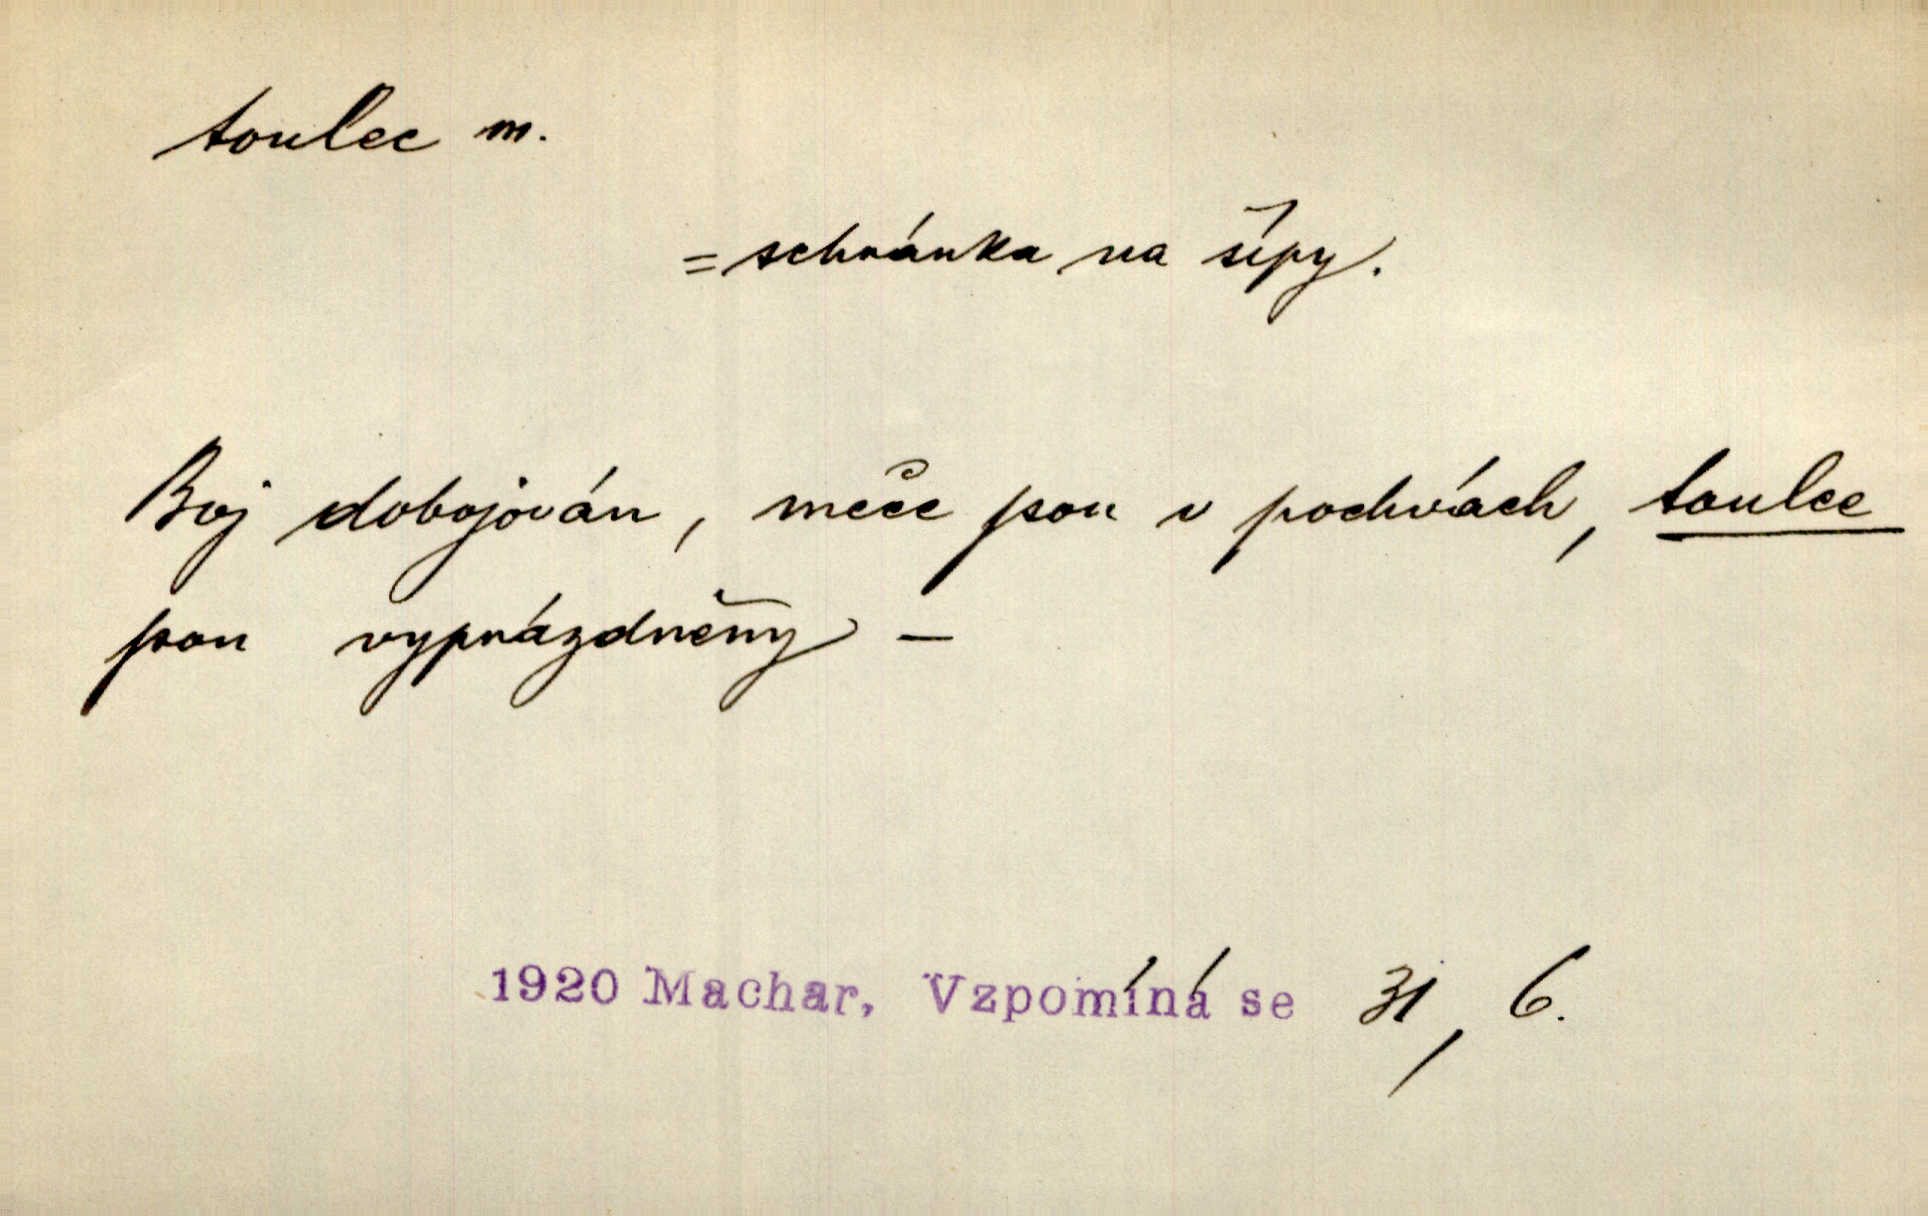 toulec m.
= schránka na šípy.
Boj dobojován, meče jsou v pochvách, toulce
jsou vyprázdněny —
1920 Machar, Vzpomíná se 31, 6.